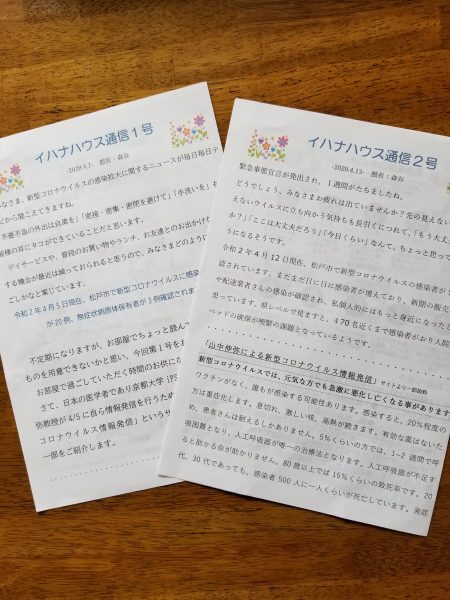 イハナハウス通信1号
-2020.4.7- 館長：森谷
なさま、新型コロナウイルスの感染拡大に関するニュースが毎日毎日テ
どから聞こえてきますね。
不要不急の外出は自粛を」「密接・密集・密閉を避けて」「手洗いを」も
皆様の耳にタコができていることだと思います。
デイサービスや、普段のお買い物やランチ、お友達とのお出かけ
する機会が最近は減っておられると思うので、みなさまどのように
ごしかなと案じています。
令和2年4月5日現在、松戸市で新型コロナウイルスに感染
が20例、無症状病原体保有者が3例確認されま
不定期になりますが、お部屋でちょっと読んで
ものを用意できないかと思い、今回第1号をお
お部屋で過ごしていただく時間のお供にな
さて、日本の医学者であり京都大学iPS
弥教授が4/5に自ら情報発信を行うため
コロナウイルス情報発信」というサ
一部をご紹介します。
イハナハウス通信2号
-2020.4.13- 館長：森谷
緊急事態宣言が発出され、1週間がたちましたね。
どうでしょう、みなさまお疲れは出ていませんか？先の見えない
えないウイルスに立ち向かう気持ちも長引くにつれて、「もう大丈
か？」「ここは大丈夫だろう」「今日くらい」なんて、ちょっと思って
うになるそうです。
令和2年4月12日現在、松戸市で新型コロナウイルスの感染者が
認されています。まだまだ日に日に感染者が増えており、新聞の販売
や配達業者さんの感染が確認され、私個人的にはもっと身近になったと
思っています。県レベルで見ますと、470名近くまで感染者がおり入院
ベッドの確保が喫緊の課題となっているようです。
「山中伸弥による新型コロナウイルス情報発信」サイトより一部抜粋
新型コロナウイルスでは、元気な方でも急激に悪化し亡くなる事があります
ワクチンがなく、誰もが感染する可能性あります。感染すると、20%程度の
方は重症化します。息切れ、激しい咳、高熱が続きます。有効な薬はないた
め、患者さんは耐えるしかありません。5%くらいの方では、1~2週間で呼
吸困難となり、人工呼吸器が唯一の治療法となります。人工呼吸器が不足す
ると助かる命が助かりません。80歳以上では15%くらいの致死率です。20
代、30代であっても、感染者500人に一人くらいが死亡しています。発症